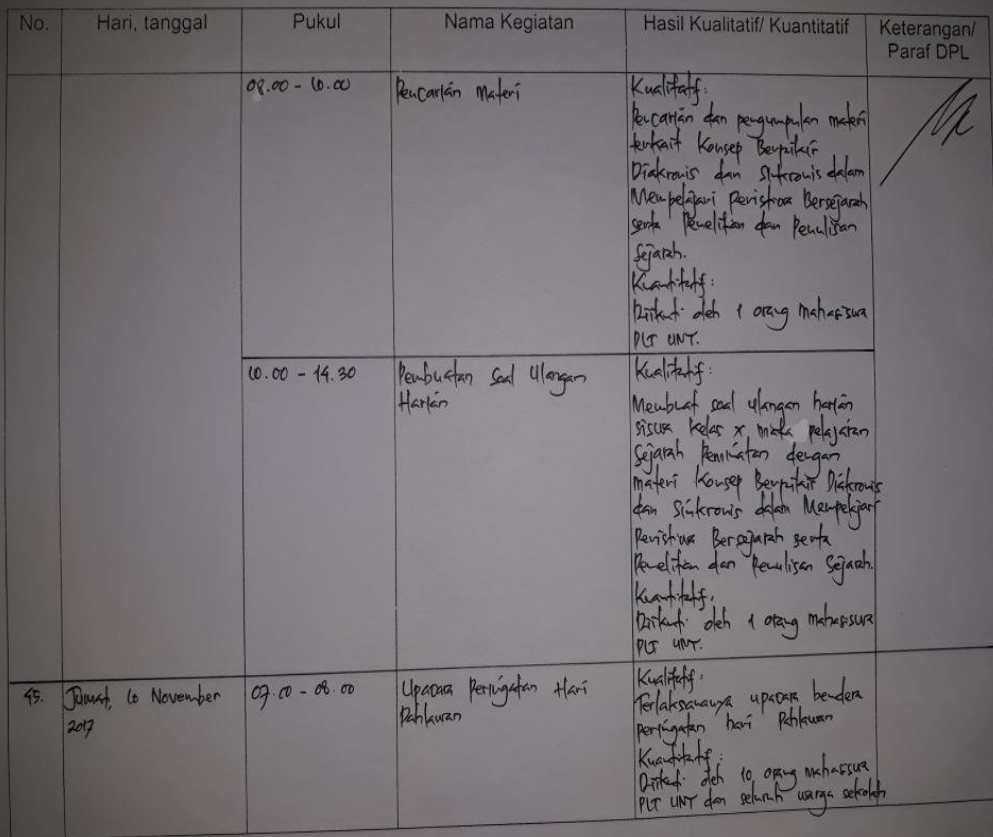 No. Hari, tanggal Pukul Nama Kegiatan Hasil Kualitatif/ Kuantitatif Keterangan/
Paraf DPL
08.00 - 10.00 Pencarian Materi Kualitatif:
Pencarian dan pengumpulan materi
terkait Konsep Berpikir
Diakronis dan Sinkronis dalam
Mempelajari Peristiwa Bersejarah
serta Penelitian dan Penulisan
Sejarah.
Kuantitatif:
Diikuti oleh 1 orang mahasiswa
PLT UNY.
10.00 - 14.30 Pembuatan Soal Ulangan Kualitatif:
Harian
Membuat soal ulangan harian
siswa kelas X mata pelajaran
Sejarah Peminatan dengan
materi Konsep Berpikir Diakronis
dan Sinkronis dalam Mempelajari
Peristiwa Bersejarah serta
Penelitian dan Penulisan Sejarah.
Kuantitatif:
Diikuti oleh 1 orang mahasiswa
PLT UNY.
45. Jumat, 10 November 07.00 - 08.00 Upacara Peringatan Hari Kualitatif:
2017 Pahlawan
Terlaksananya upacara bendera
peringatan hari Pahlawan
Kuantitatif:
Diikuti oleh 10 orang mahasiswa
PLT UNY dan seluruh warga sekolah